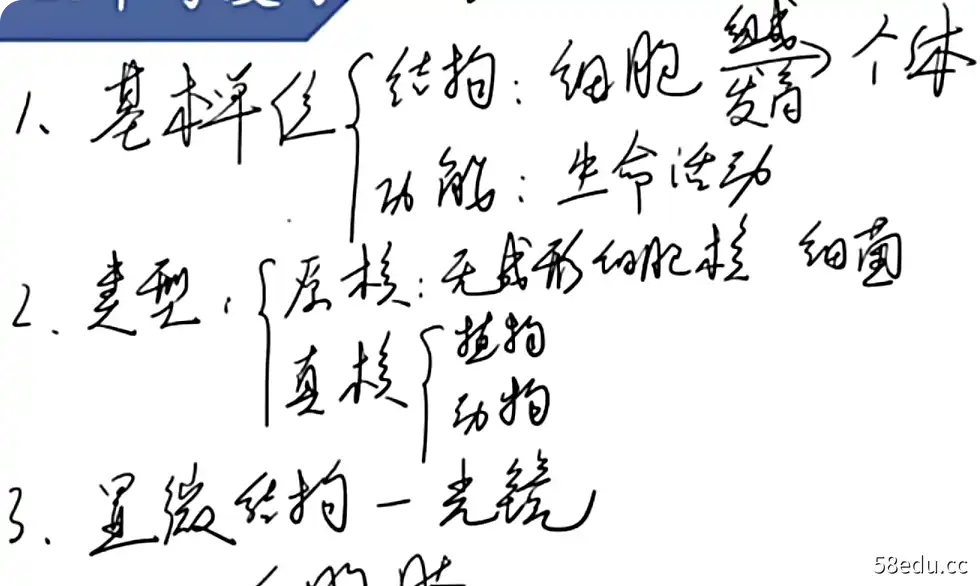 1、基本单位 { 结构：细胞 组成 发育 → 个体
功能：生命活动
2、类型： { 原核：无成形细胞核 细菌
真核 { 植物
动物
3、显微结构－光镜
58edu.cc